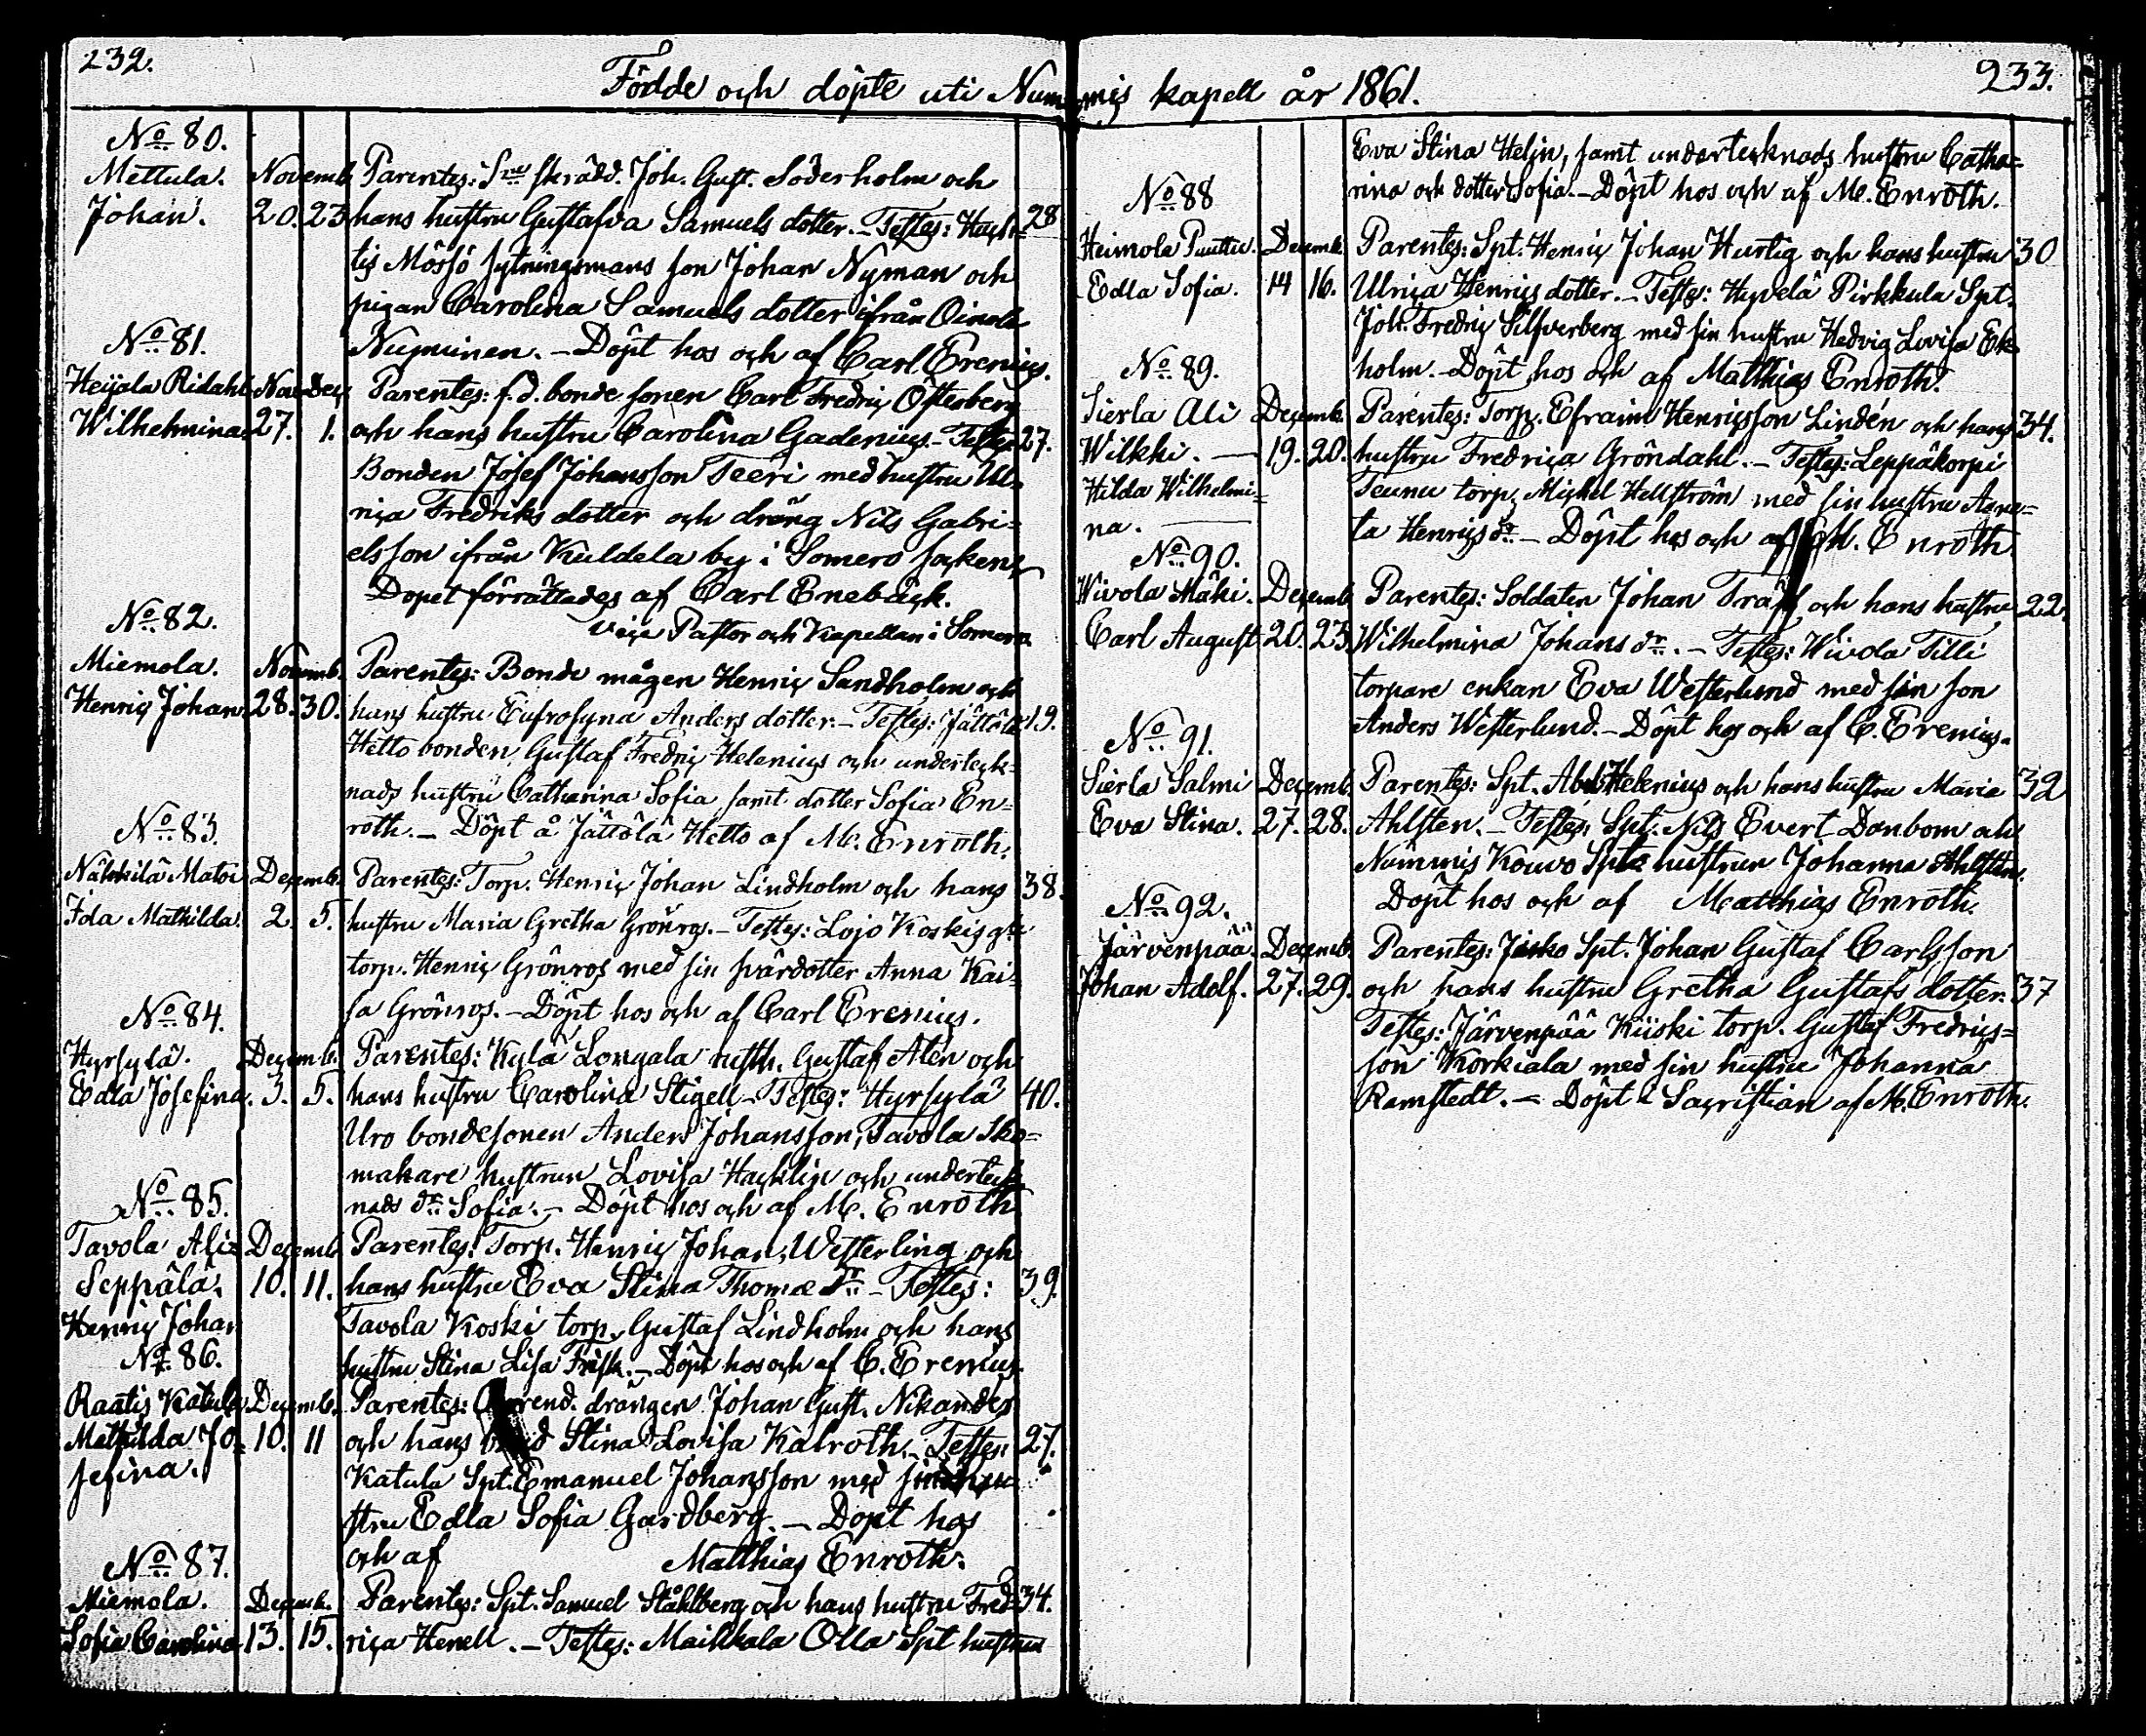 232.
Födde och döpte uti Nummis kapell år 1861.
233.
No 80.
Mettula. Novemb. Parentes: Sne skrädd. Joh. Gust. Söderholm och
Johan. 20. 23 hans hustru Gustafva Samuels dotter. – Testes: Hach= 28
tis Mössö sytningsmans son Johan Nyman och
pigan Carolina Samuels dotter ifrån Oinola
No 81.
Nuyminen. – Döpt hos och af Carl Erenius.
Heijala Ridahl Nov. Dec. Parentes: f.d. bonde sonen Carl Fredric Österberg
Wilhelmina 27. 1. och hans hustru Carolina Gadenius – Testes: 27.
Bonden Josef Johansson Teeri med hustru Ul=
rica Fredriks dotter och dräng Nils Gabri=
elsson ifrån Kuldela by i Somero socken,
Dopet förrättades af Carl Enebäck.
vice Pastor och Kapellan i Somero.
No 82.
Miemola. Novemb. Parentes: Bonde mågen Henric Sandholm och
Henric Johan. 28. 30. hans hustru Eufrosyna Anders dotter. – Testes: Jättölä 19.
Hetto bonden Gustaf Fredric Helenius och underteck=
nads hustru Catharina Sofia samt dotter Sofia En=
roth. – Döpt å Jättölä Hetto af M. Enroth.
No 83.
Näkkilä Matoi Decemb. Parentes: Torp. Henric Johan Lindholm och hans 38.
Ida Mathilda. 2. 5. hustru Maria Gretha Grönros. – Testes: Lojo Koskis
torp. Henric Grönros med sin svärdotter Anna Kai=
sa Grönros. – Döpt hos och af Carl Erenius.
No 84.
Hyrsylä. Decemb. Parentes: Kylä Longala rusth. Gustaf Alén och
Edla Josefina. 3. 5. hans hustru Carolina Stigell – Testes: Hyrsylä 40.
Uro bondesonen Anders Johansson, Tavola Sko=
makare hustrun Lovisa Hacklin och underteck
nads dr Sofia. – Döpt hos och af M. Enroth
No 85.
Tavola Ali= Decemb. Parentes: Torp. Henric Johan Westerling och
Seppälä. 10. 11. hans hustru Eva Stina Thomæ dr – Testes: 39.
Henric Johan Tavola Koski torp. Gustaf Lindholm och hans
hustru Stina Lisa Frisk. – Döpt hos och af C. Erenius.
No 86.
Raatis Katula Decemb. Parentes: drängen Johan Gust. Nikander
Mathilda Jo= 10. 11 och hans Stina Lovisa Kalroth. – Testes: 27.
sefina. Katula Spt. Emanuel Johansson med sin hu=
stru Edla Sofia Gardberg. – Döpt hos
och af Matthias Enroth.
No 87.
Miemola. Decemb. Parentes: Spt. Samuel Ståhlberg och hans hustru Fred= 34.
Sofia Carolina 13. 15. rica Henell. – Testes: Maikkala Olla Spt hustrun
Eva Stina Helin, samt undertecknads hustru Catha=
rina och dotter Sofia. – Döpt hos och af M. Enroth.
No 88
Heimola Puuttu. Decemb. Parentes: Spt. Henric Johan Hurtig och hans hustru 30
Edla Sofia. 14 16. Ulrica Henrics dotter. – Testes: Hyvelä Pirkkula Spt.
Joh. Fredric Silfverberg med sin hustru Hedvig Lovisa Ek
holm. – Döpt hos och af Matthias Enroth.
No 89.
Sierla Ali Decemb. Parentes: Torp. Efraim Henricsson Lindén och hans 34.
Wilkki. – 19. 20. hustru Fredrica Gröndahl. – Testes: Leppäkorpi
Hilda Wilhelmi= Teunu torp. Mickel Hellström med sin hustru Agne=
na. – ta Henrics dr – Döpt hos och af M. Enroth
No 90.
Wivola Mäki. Decemb. Parentes: Soldaten Johan Traff och hans hustru 22.
Carl August 20. 23. Wilhelmina Johans dr. – Testes: Wivola Tilli
torpare enkan Eva Westerlund med sin son
Anders Westerlund. – Döpt hos och af C. Erenius.
No 91.
Sierla Salmi Decemb. Parentes: Spt. Abel Helenius och hans hustru Maria 32
Eva Stina. 27. 28. Ahlsten. – Testes: Spt. Nils Evert Donbom och
Nummis Kouvo Spts hustrun Johanna Ahlsten.
Döpt hos och af Matthias Enroth.
No 92.
Järvenpää. Decemb. Parentes: Jusko Spt. Johan Gustaf Carlsson
Johan Adolf. 27. 29. och hans hustru Gretha Gustafs dotter. 37
Testes: Järvenpää Kiiski torp. Gustaf Fredrics=
son Korkiala med sin hustru Johanna
Ramstedt. – Döpt i Sacristian af M. Enroth.